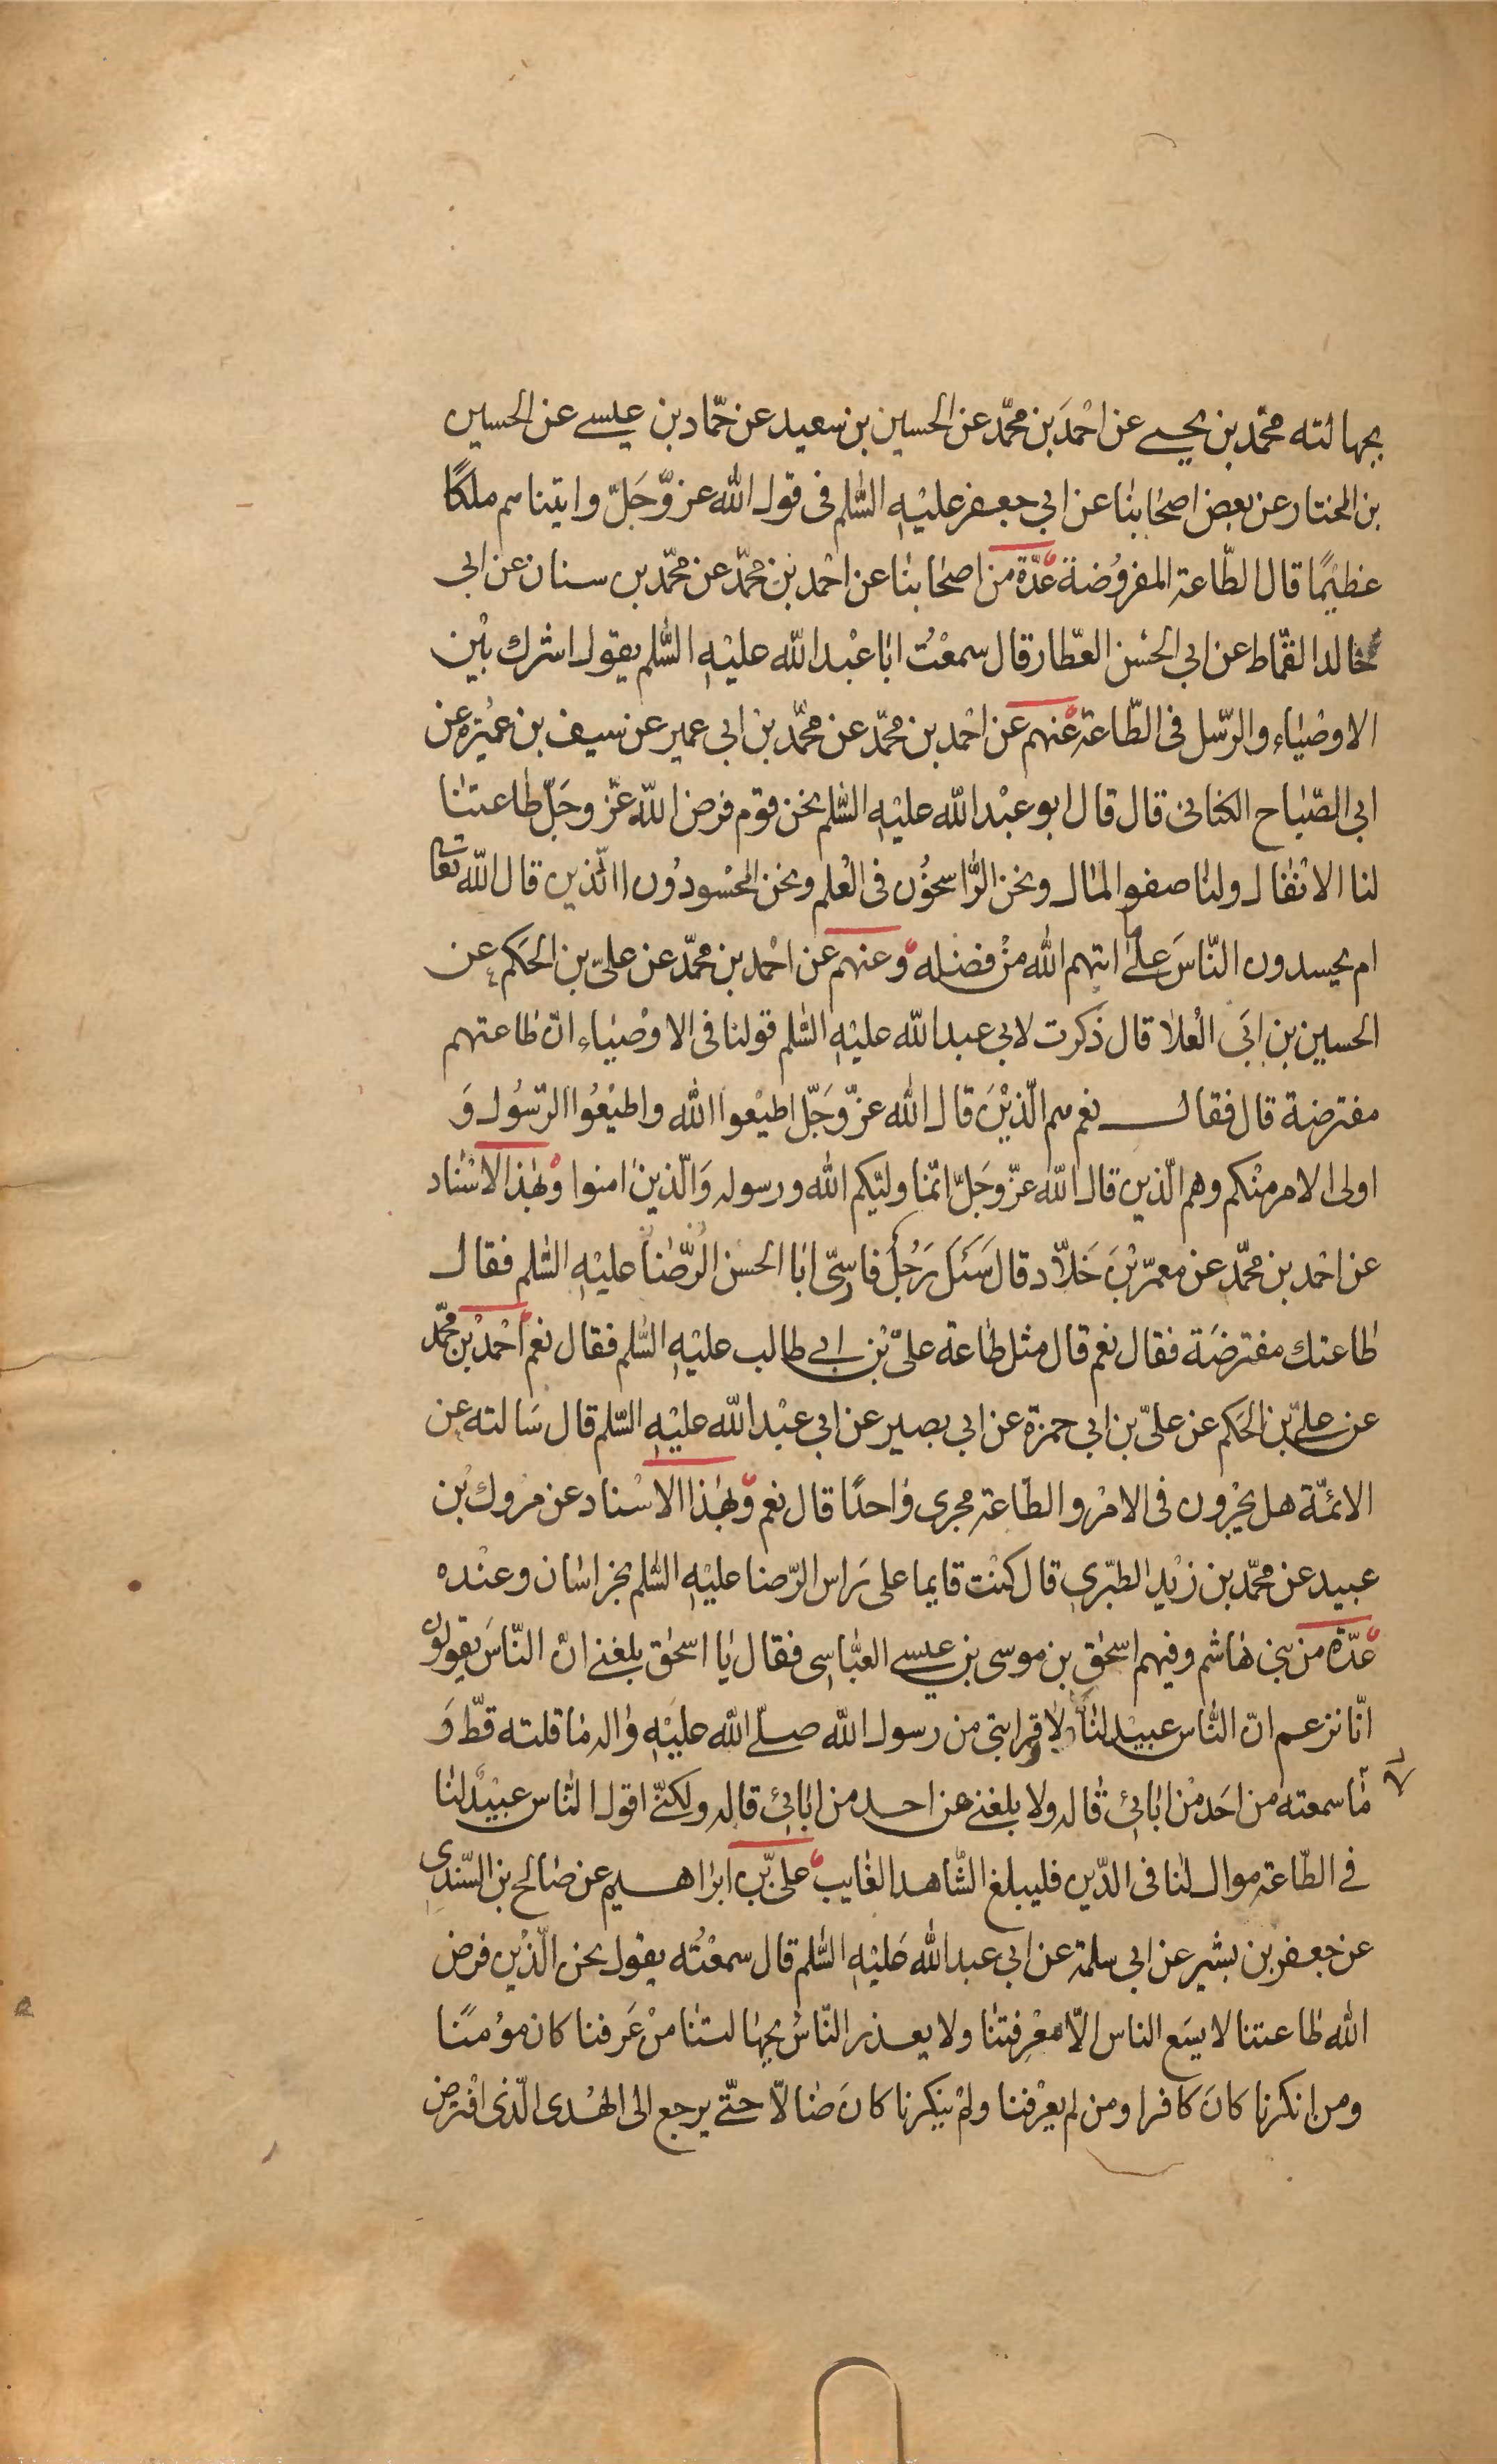 بجهالته محمّد بن يحيى عن احْمَد بن محمّد عن الحسين بن سعيد عن حمّاد بن عيسى عن الحسين
بن المختار عن بعض اصحابنا عن ابي جعفر عليْهِ السّٰلم فى قول الله عزّ وَجَلّ واتيناهم ملكًا
عظيْمًا قال الطّاعة المفروُضة عدّة من اصحابنا عن احْمد بن محمّد عن محمّد بن سنان عن ابى
خالد القمّاط عن ابي الحسن العطّار قال سمعْتُ ابا عبْد الله عليْهِ السّٰلم يقول اشرك بيْن
الاوصْيٰاء والرّسل فى الطّاعة عنهم عن احْمد بن محمّد عن محمّد بن ابي عمير عن سيف بن عميْرة عن
ابى الصّبٰاح الكنانى قال قال ابو عبْد الله عليْهِ السّٰلم نحن قوم فرض الله عزّ وجَلّ طاعتنٰا
لنا الانْفٰال ولنٰا صفو المٰال ونحن الرّٰاسخوُن فى الْعلم ونحن المحْسودوُن االّذين قال الله تعالى
ام يحسدون النّاسَ علىٰ ما اتيهم الله منْ فضله وعنهم عن احْمد بن محمّد عن علىّ بن الحَكم عن
الحسين بن ابَى الْعلا قال ذكرت لابي عبد الله عليْهِ السّٰلم قولنا فى الاوْصيٰاء انّ طٰاعتهم
مفترضة قال فقال نعم هم الّذيْنَ قال الله عزّ وَجَلّ اطيْعوا الله واطيْعُوا الرّسُول وَ
اولى الامر منْكم وهم الّذين قال الله عزّ وجَلّ انّمٰا وليّكم الله ورسوله وَالّذين امنوا وبهٰذا الاسْنٰاد
عن احْمد بن محمّد عن معمرّ بْن خَلاّد قال سَئَل رَجُل فارسىّ ابٰا الحسن الرّضٰا عليْهِ السّٰلم فقال
طٰاعتك مفترضَة فقال نعم قال مثل طٰاعة علىّ بْن ابى طالب عليْهِ السّٰلم فقال نعم احْمد بْن محمّد
عن علىّ بن الحَكم عن علىّ بن ابي حمزة عن ابي بصير عن ابي عبْد الله عليْهِ السّٰلم قال سَالته عن
الائمّة هل يجْرون فى الامْر والطّاعة مجرى وٰاحدًا قال نعم وبهٰذا الاسْناد عن مروك بْن
عبيد عن محمّد بن زيْد الطّبري قال كنْت قايما على رَاس الرّضا عليْهِ السّٰلم بخراسٰان وعنْده
عدّة من بنى هٰاشم وفيهم اسحٰق بن موسى بن عيسى العبّٰاسى فقال يٰا اسحٰق بلغنى انّ النّٰاسَ يقولون
انّا نزعم انّ النّٰاس عبيْد لنٰا لا وقرابتى من رسول الله صلّى الله عليْهِ وٰاله مٰا قلته قطّ وَ
لا
مٰا سمعته من احَد منْ ابٰائى قٰاله ولا بلغنى عن احد من ابٰائى قاله ولكنّى اقول النّٰاس عبيْد لنٰا
فى الطّاعة موال لنا فى الدّين فليبلغ الشّاهد الغٰايب علىّ بن ابراهيم عن صٰالح بن السّندى
عن جعفر بن بشير عن ابي سلمة عن ابي عبد الله عَليْهِ السّٰلم قال سمعْتُه يقول نحن الّذيْن فرض
الله طٰاعتنا لا يسَع الناس الاّ معْرفتنٰا ولا يعذر النّاسُ بجهٰالتنٰا منْ عَرفنا كان موُمنًا
ومن انكرنا كانَ كافرا ومن لم يعْرفنا ولمْ ينكرنا كانَ ضٰالاّ حتّى يرجع الى الهُدى الّذى افْترض